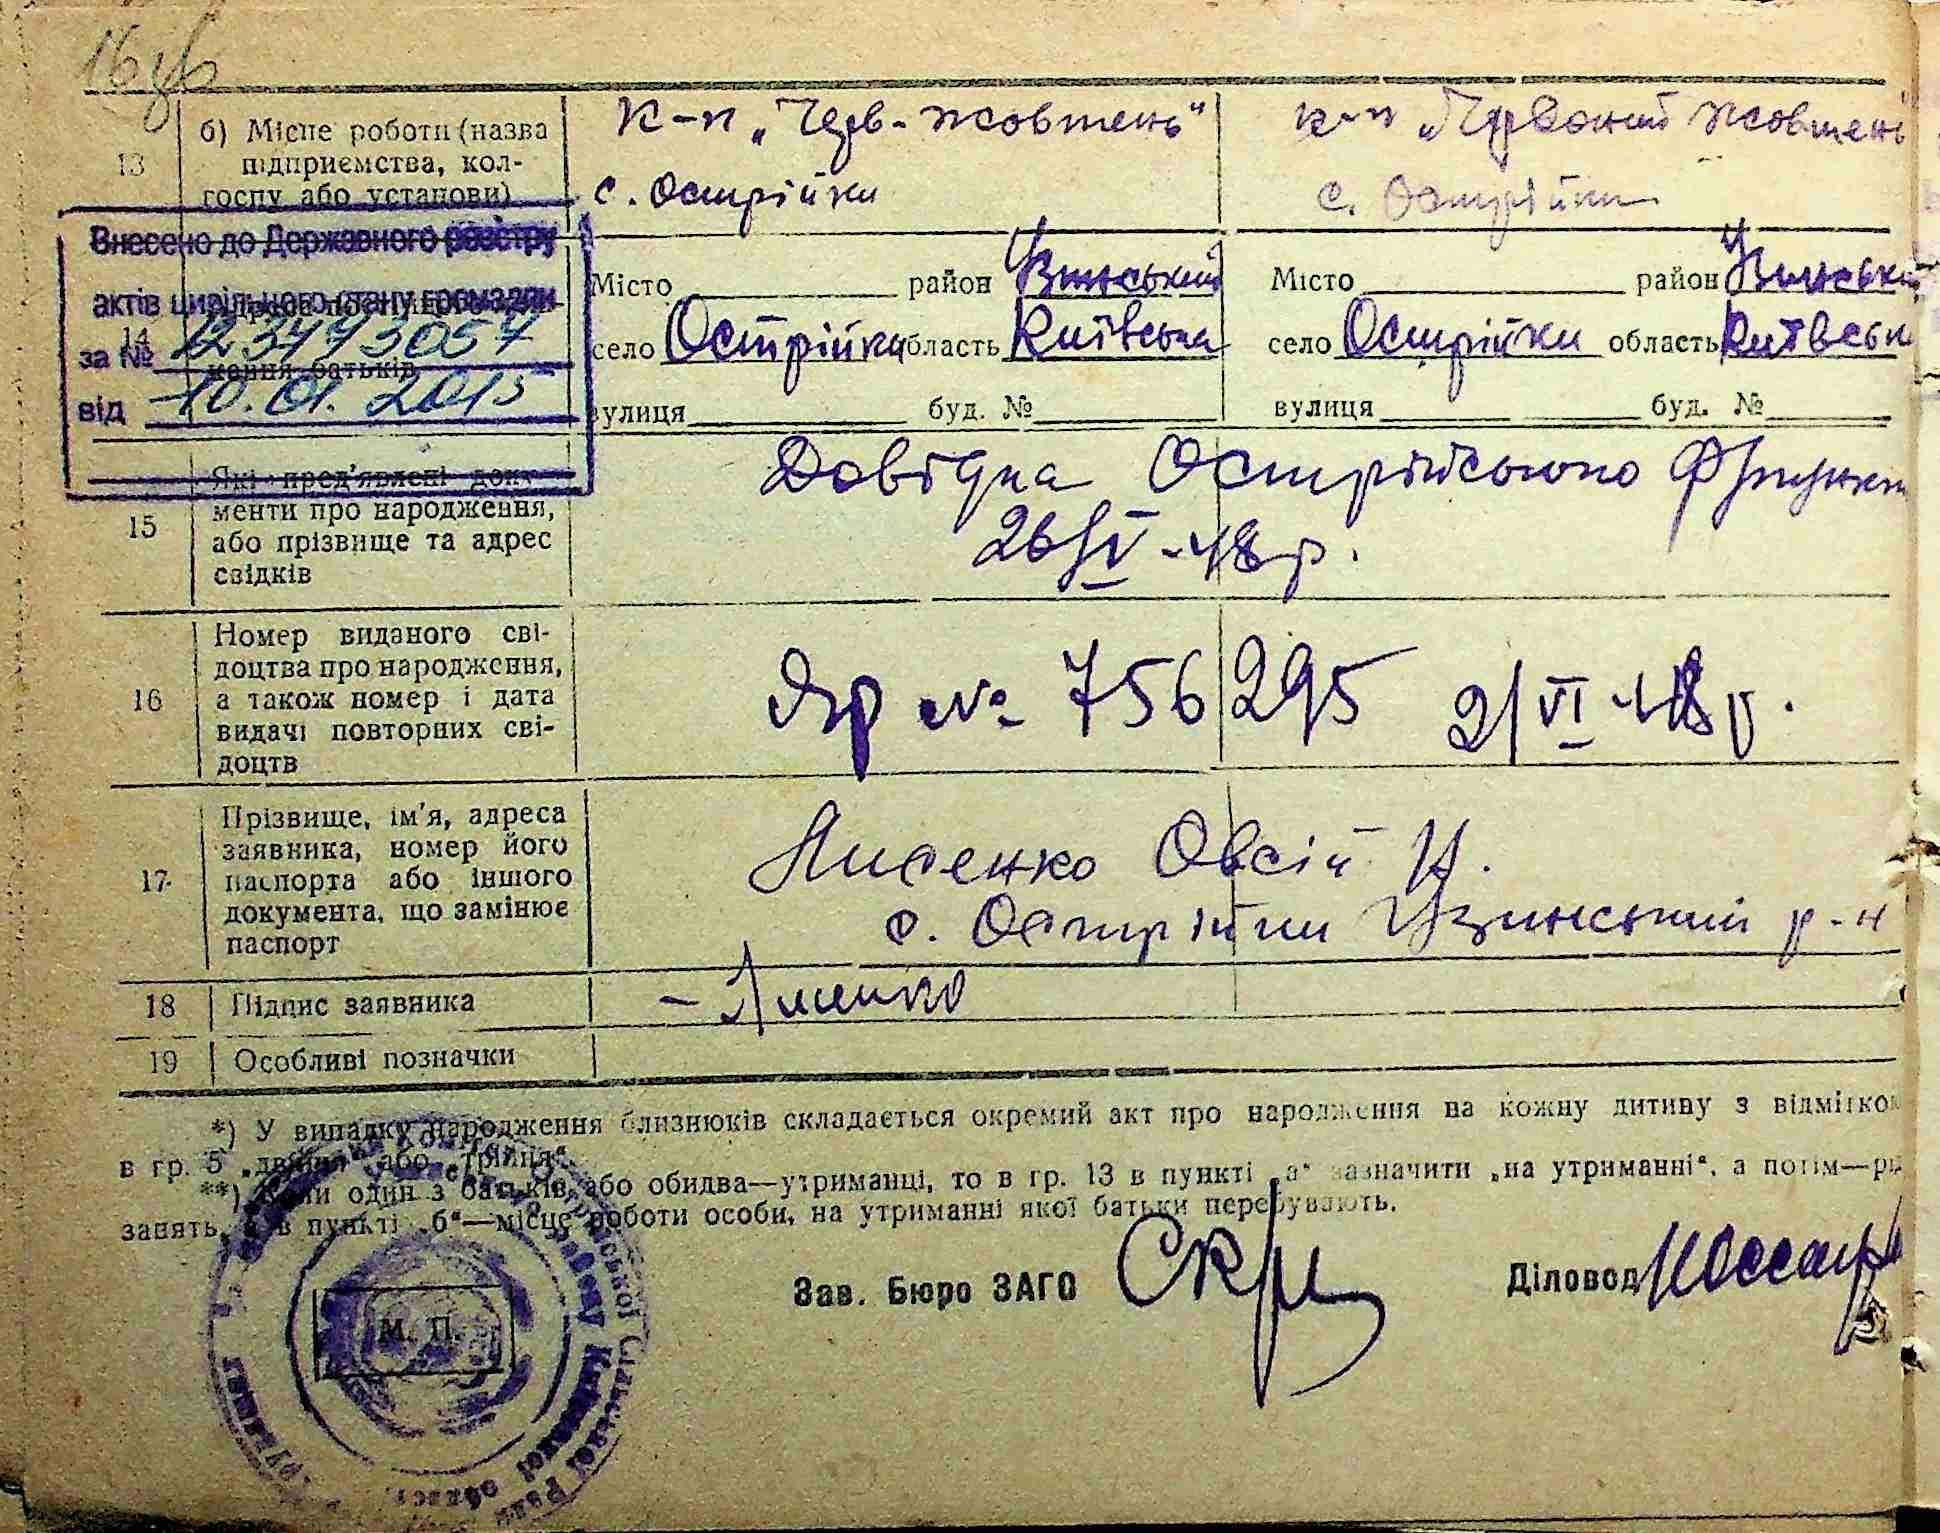 16зв
13
б) Місце роботи (назва
підприємства, кол-
госпу або установи)
к-п „Черв-жовтень“
с. Острійки
к-п „Червоний жовтень
с. Острійки
Внесено до Державного реєстру
актів цивільного стану громадян
за № 123473057
від 10.01.2015
14
кання батьків
Місто район Узинський
село Острійки область Київська
вулиця буд. №
Місто район Узинськи
село Острійки область Київськ
вулиця буд. №
15
Які пред'явлені доку-
менти про народження,
або прізвище та адрес
свідків
Довідка Острійського
26/IV-48р.
16
Номер виданого сві-
доцтва про народження,
а також номер і дата
видачі повторних сві-
доцтв
ЯР № 756295 2/VI-48р.
17
Прізвище, ім'я, адреса
заявника, номер його
паспорта або іншого
документа, що замінює
паспорт
Лисенко Овсій И.
с. Острійки Узинський р-н
18
Підпис заявника
- Лисенко
19
Особливі позначки
*) У випадку народження близнюків складається окремий акт про народження на кожну дитину з відмітко
в гр. 5 „двійня“ або „трійця“.
**) Коли один з батьків або обидва—утриманці, то в гр. 13 в пункті „а“ зазначити „на утриманні“, а потім—рі
занять, а в пункті „б“—місце роботи особи, на утриманні якої батьки перебувають.
Зав. Бюро ЗАГС
Діловод
М. П.